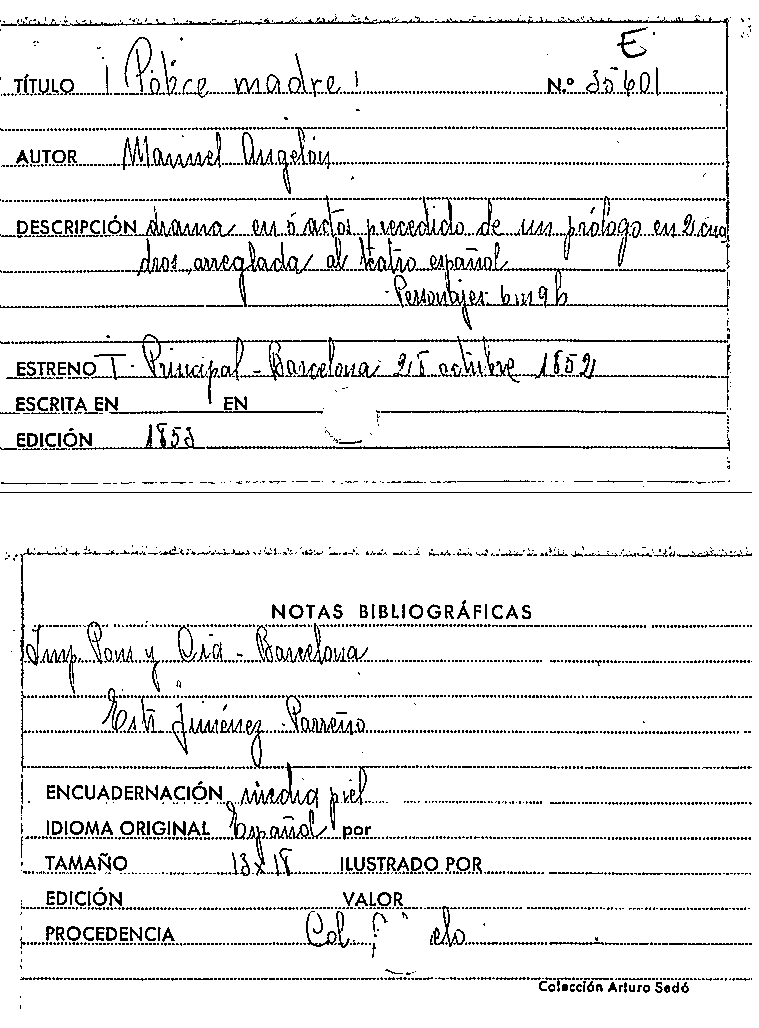 E
TÍTULO ¡Pobre madre! N.º 35601
AUTOR Manuel Angelón
DESCRIPCIÓN drama en 5 actos precedido de un prólogo en 2 cua
dros, arreglada al teatro español
Personajes 6m 9h
ESTRENO T. Principal - Barcelona 28 octubre 1852
ESCRITA EN EN
EDICIÓN 1853
NOTAS BIBLIOGRÁFICAS
Imp. Pons y Cia - Barcelona
Jiménez Parreño
ENCUADERNACIÓN media piel
IDIOMA ORIGINAL Español por
TAMAÑO 13x18 ILUSTRADO POR
EDICIÓN VALOR
PROCEDENCIA Col.
Colección Arturo Sedó